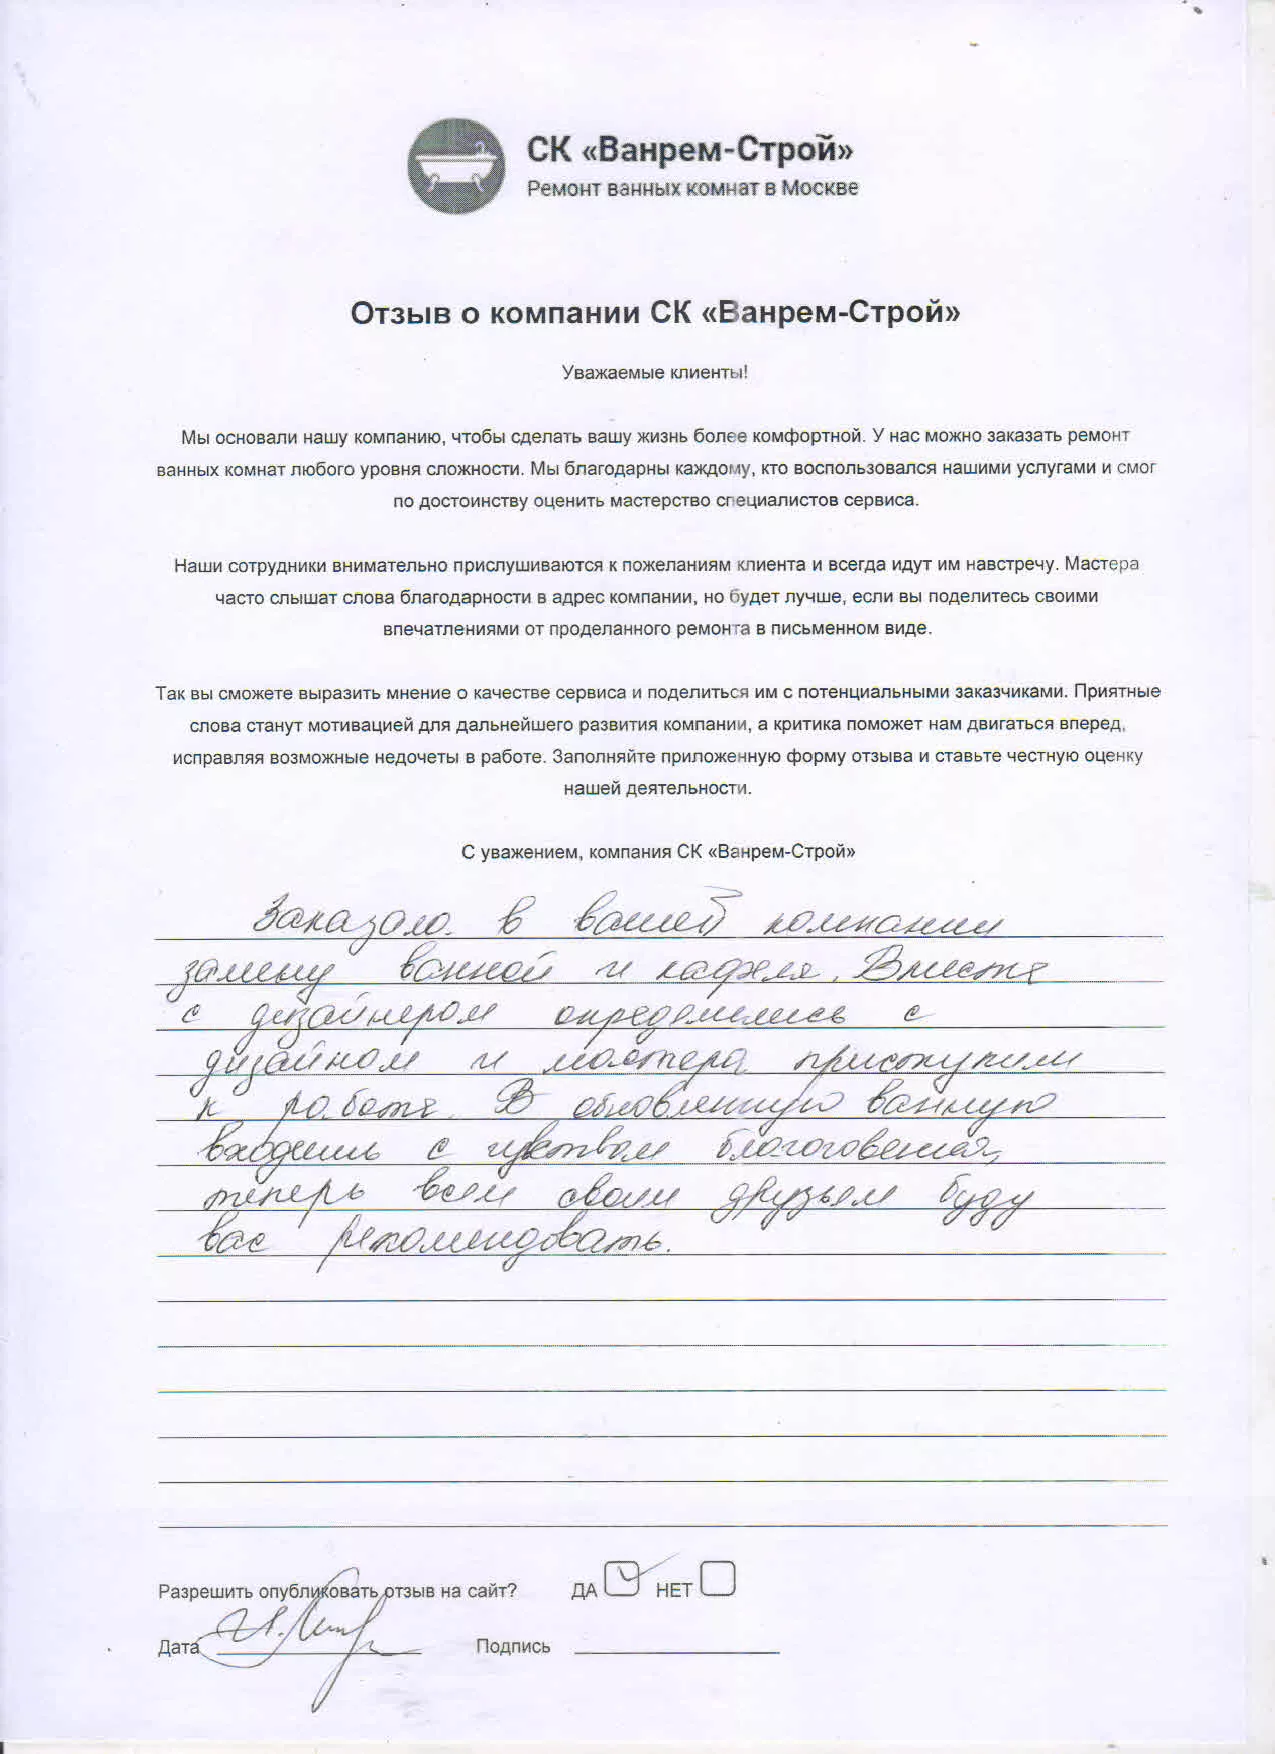 СК «Ванрем-Строй»
Ремонт ванных комнат в Москве
Отзыв о компании СК «Ванрем-Строй»
Уважаемые клиенты!
Мы основали нашу компанию, чтобы сделать вашу жизнь более комфортной. У нас можно заказать ремонт
ванных комнат любого уровня сложности. Мы благодарны каждому, кто воспользовался нашими услугами и смог
по достоинству оценить мастерство специалистов сервиса.
Наши сотрудники внимательно прислушиваются к пожеланиям клиента и всегда идут им навстречу. Мастера
часто слышат слова благодарности в адрес компании, но будет лучше, если вы поделитесь своими
впечатлениями от проделанного ремонта в письменном виде.
Так вы сможете выразить мнение о качестве сервиса и поделиться им с потенциальными заказчиками. Приятные
слова станут мотивацией для дальнейшего развития компании, а критика поможет нам двигаться вперед,
исправляя возможные недочеты в работе. Заполняйте приложенную форму отзыва и ставьте честную оценку
нашей деятельности.
С уважением, компания СК «Ванрем-Строй»
Заказала в вашей компании
замену ванной и кафеля. Вместе
с дизайнером определились с
дизайном и мастера приступили
к работе. В обновленную ванную
входишь с чувством благоговения,
теперь всем своим друзьям буду
вас рекомендовать.
Разрешить опубликовать отзыв на сайт? ДА НЕТ
Дата Подпись